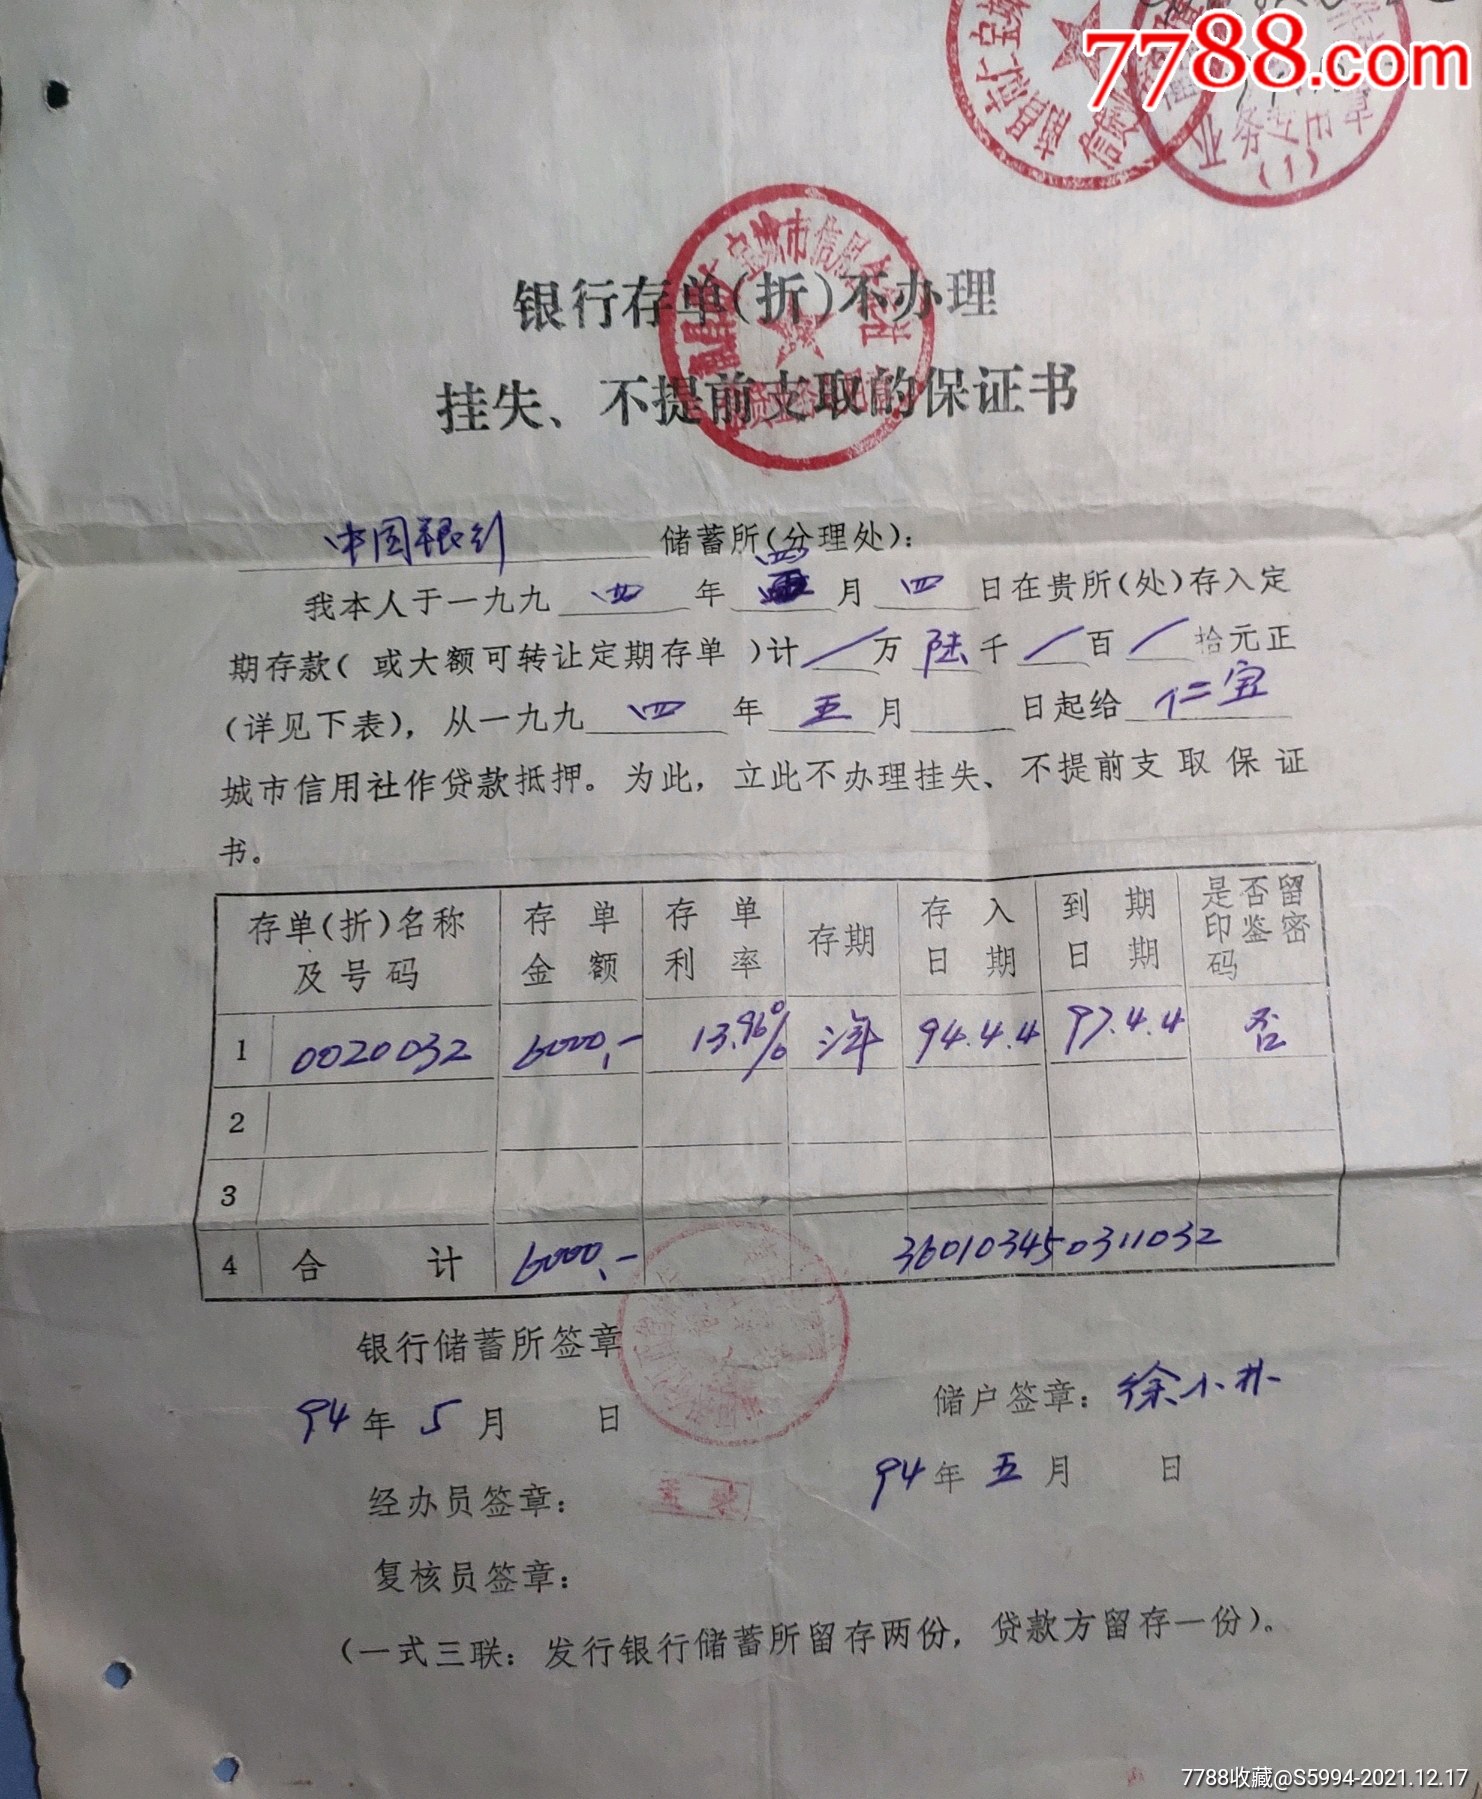 7788.com
业务专用章
(1)
银行存单(折)不办理
挂失、不提前支取的保证书
中国银行 储蓄所(分理处):
我本人于一九九 四 年 四 月 四 日在贵所(处)存入定
期存款( 或大额可转让定期存单 )计 / 万 陆 千 / 百 / 拾元正
(详见下表), 从一九九 四 年 五 月 日起给 仁宝
城市信用社作贷款抵押。为此, 立此不办理挂失、不提前支取保证
书。
存单(折)名称及号码 存单金额 存单利率 存期 存入日期 到期日期 是否留印鉴密码
1 0020032 6000.- 13.96% 年 94.4.4 97.4.4 否
2
3
4 合计 6000.- 360103450311032
银行储蓄所签章
94年 5 月 日
储户签章: 徐小
94年 五 月 日
经办员签章:
复核员签章:
(一式三联: 发行银行储蓄所留存两份, 贷款方留存一份)。
7788收藏@S5994-2021.12.17